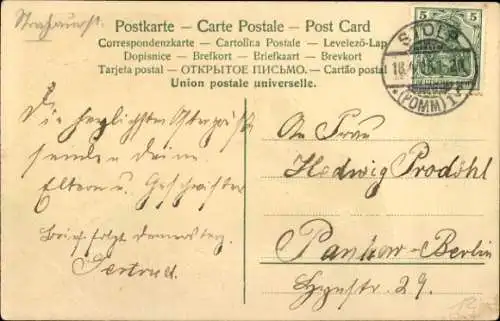 Postkarte – Carte Postale – Post Card
Correspondenzkarte – Cartolina Postale – Levelező-Lap
Dopisnice – Brefkort – Briefkaart – Brevkort
Tarjeta postal – ОТКРЫТОЕ ПИСЬМО. – Cartão postal
Union postale universelle.
5 5
STOLP
(POMM) 1
Die herzlichsten Ostergrüße
senden deine
Eltern u. Geschwister
Brief folgt Donnerstag.
Gertrud.
An Frau
Hedwig Prodöhl
Pankow-Berlin
29.